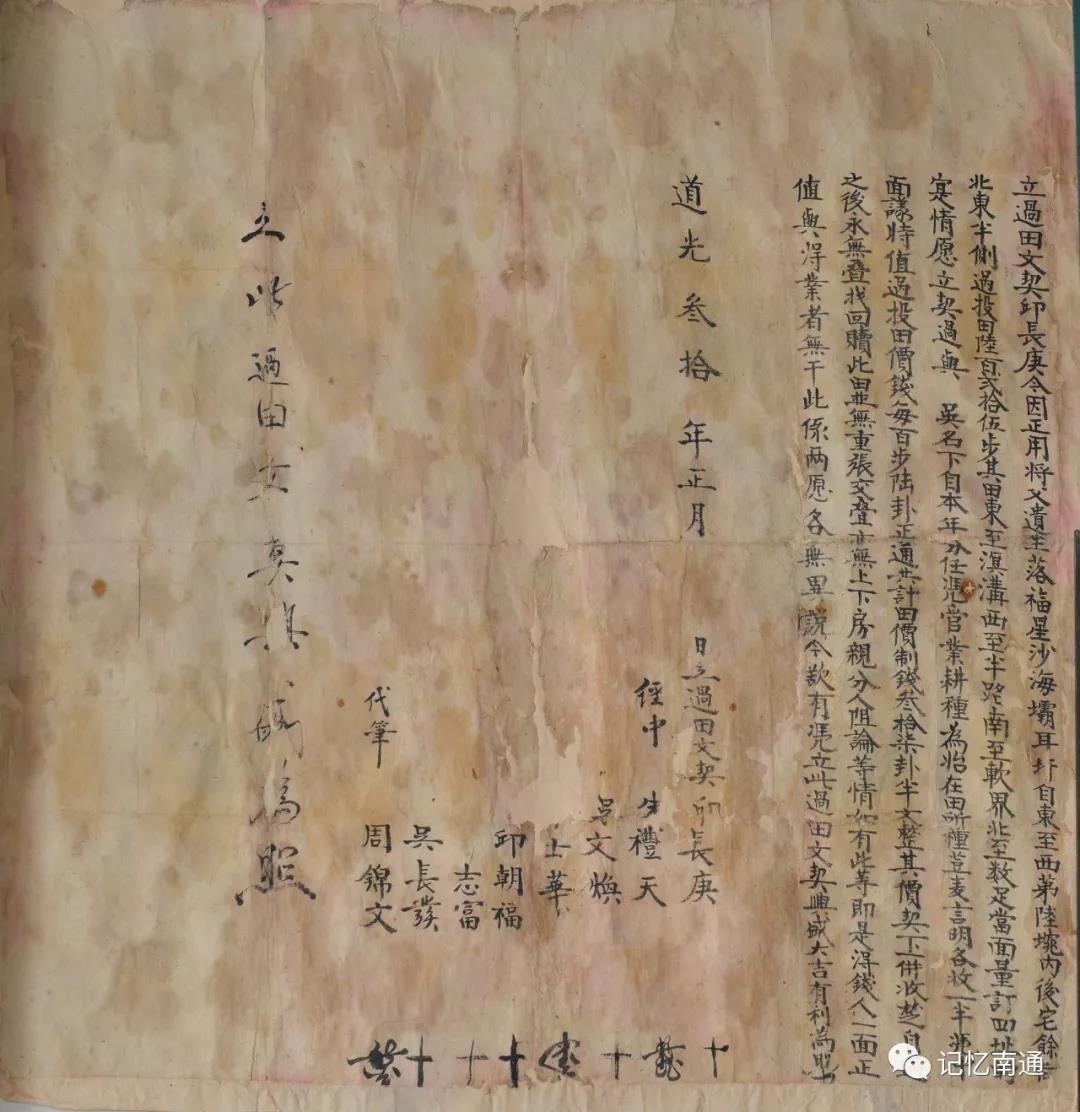 立過田文契邱長庚今因正用将父遺坐落福星沙海壩耳圩自東至西第陸埦内後宅餘
北東半側過投田陸百弍拾伍步其田東至滧溝西至半路南至軟界北至数足當面量訂四址
定情愿立契過與 吳名下自本年分任憑官業耕種為始在田所種荳麦言明各收一半
面議時值過投田價錢每百步陸卦正通共計田價制錢叁拾柒卦半文整其價契下併收楚自
之後永無叠找回贖此田並無重張交叠亦無上下房親分人阻論等情如有此等即是得錢人一面正
值與得業者無干此係两愿各無異說今欲有憑立此過田文契興盛大吉有利為照
道光叁拾年正月 日立過田文契邱長庚
經中 禮天
文煥
士華
邱朝福
志富
吳長發
代筆 周錦文
立此過田文契 為照
十 十 十 十 十
记忆南通